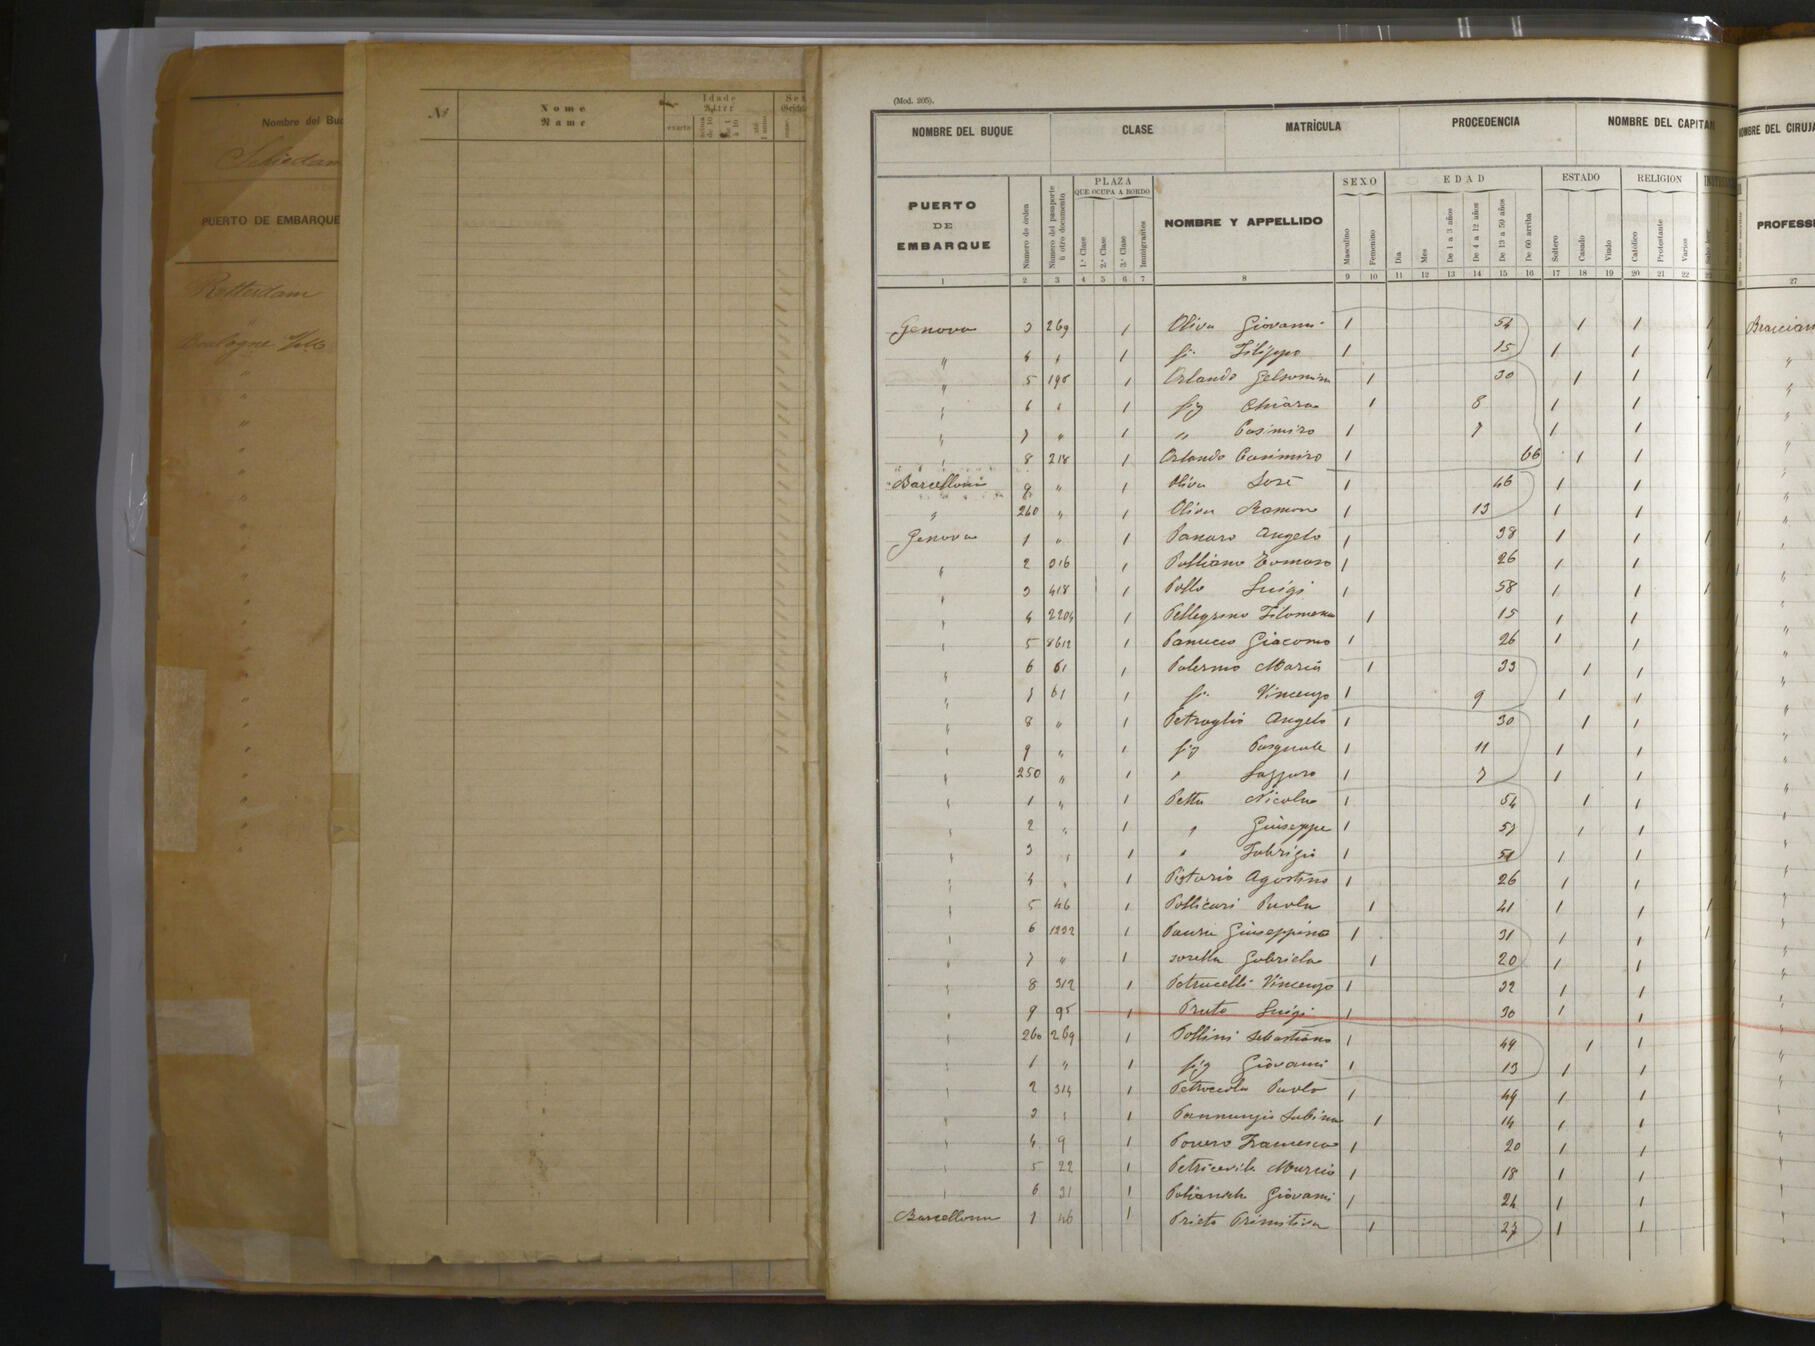 Nombre del Buq
Schiedam
PUERTO DE EMBARQUE
Rotterdam
Boulogne
Nº Nome Name Idade Alter exacta Sex
(Mod. 205).
NOMBRE DEL BUQUE CLASE MATRÍCULA PROCEDENCIA NOMBRE DEL CAPITAN NOMBRE DEL CIRUJA
PUERTO DE EMBARQUE Número de órden Número del pasaporte ú otro documento PLAZA QUE OCUPA A BORDO 1.ª Clase 2.ª Clase 3.ª Clase Inmigrantes NOMBRE Y APPELLIDO SEXO Masculino Femenino EDAD Dia Mes De 1 a 3 años De 4 a 12 años De 13 a 59 años De 60 arriba ESTADO Soltero Casado Viudo RELIGION Católico Protestante Varios PROFESI
1 2 3 4 5 6 7 8 9 10 11 12 13 14 15 16 17 18 19 20 21 22 27
Genova 3 269 1 Oliva Giovanni 1 54 1 1 1
" 4 " 1 fi. Filippo 1 15 1 1 1
" 5 195 1 Orlando Gelsomina 1 30 1 1 1
" 6 " 1 fig Chiara 1 8 1 1
" 7 " 1 " Casimiro 1 7 1 1
" 8 218 1 Orlando Casimiro 1 66 1 1
Barcellona 9 " 1 Oliva José 1 46 1 1
" 240 " 1 Oliva Ramon 1 13 1 1
Genova 1 " 1 Panaro Angelo 1 38 1 1 1
" 2 316 1 Palliano Tomaso 1 26 1 1
" 3 418 1 Pollo Luigi 1 58 1 1 1
" 4 2204 1 Pellegrino Filomena 1 15 1 1
" 5 8612 1 Panucco Giacomo 1 26 1 1
" 6 61 1 Palermo Maria 1 33 1 1
" 7 61 1 fi. Vincenzo 1 9 1 1
" 8 " 1 Petraglio Angelo 1 30 1 1
" 9 " 1 fig Pasquale 1 11 1 1
" 250 " 1 " Lazzaro 1 7 1 1
" 1 " 1 Petta Nicola 1 54 1 1
" 2 " 1 " Giuseppe 1 57 1 1
" 3 " 1 " Fabrizio 1 51 1 1
" 4 " 1 Pistorio Agostino 1 26 1 1
" 5 46 1 Pollicari Paola 1 41 1 1 1
" 6 1232 1 Giuseppina 1 31 1 1 1
" 7 " 1 sorella Gabriela 1 20 1 1
" 8 312 1 Petrucelli Vincenzo 1 32 1 1
" 9 95 1 Pruto Luigi 1 30 1 1
" 260 269 1 Pollini Sebastiano 1 49 1 1
" 1 " 1 fig Giovanni 1 13 1 1
" 2 314 1 Petroccola Paolo 1 49 1 1
" 3 " 1 Pannunzio Sabina 1 14 1 1
" 4 9 1 Francesco 1 20 1 1
" 5 22 1 1 18 1 1
" 6 31 1 Giovanni 1 24 1 1
Barcellona 7 46 1 Prieto Primitiva 1 27 1 1